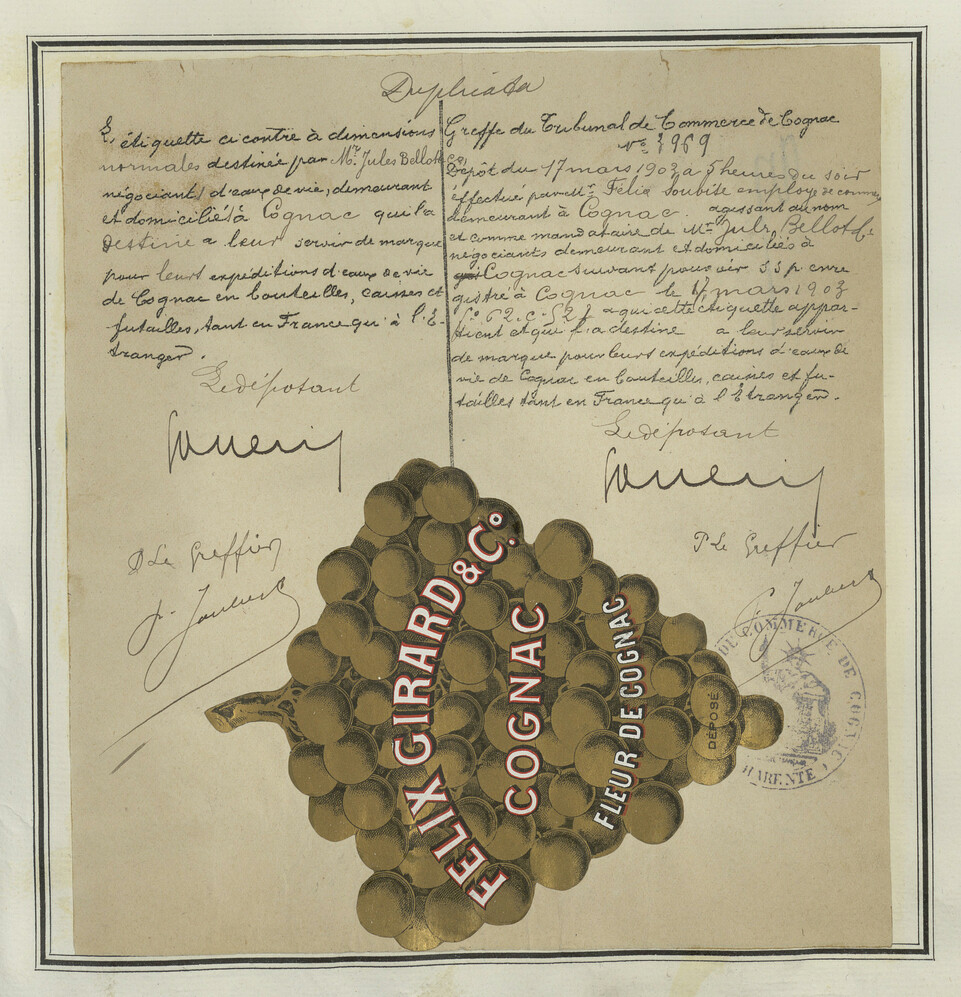 Duplicata
L'étiquette ci contre à dimensions
normales destinée par Mr Jules Bellot
négociant d'eaux de vie, demeurant
et domiciliés à Cognac qui l'a
destine a leur servir de marque
pour leurs expéditions d'eaux de vie
de Cognac en bouteilles, caisses et
futailles, tant en France qu'à l'E-
tranger.
Le déposant
P Le Greffier
Greffe du Tribunal de Commerce de Cognac
No 3969
Dépôt du 17 mars 1903 a 5 heures du soir
éffectué par Mr Félix employé de
demeurant à Cognac. agissant au nom
et comme mandataire de Mr Jules Bellot & Co
négociants demeurant et domiciliés à
Cognac suivant pouvoir s s p enre
gistré à Cognac le 17 mars 1903
fo 62. c. 528 a qui cette étiquette appar-
tient et qui l'a destine a leur servir
de marque pour leurs expéditions d'eaux de
vie de Cognac en bouteilles, caisses et fu-
tailles tant en France qu'à l'Etranger.
Le déposant
P Le Greffier
FELIX GIRARD & Co.
COGNAC
FLEUR DE COGNAC
DÉPOSÉ
DE COMMERCE DE COGNAC
CHARENTE